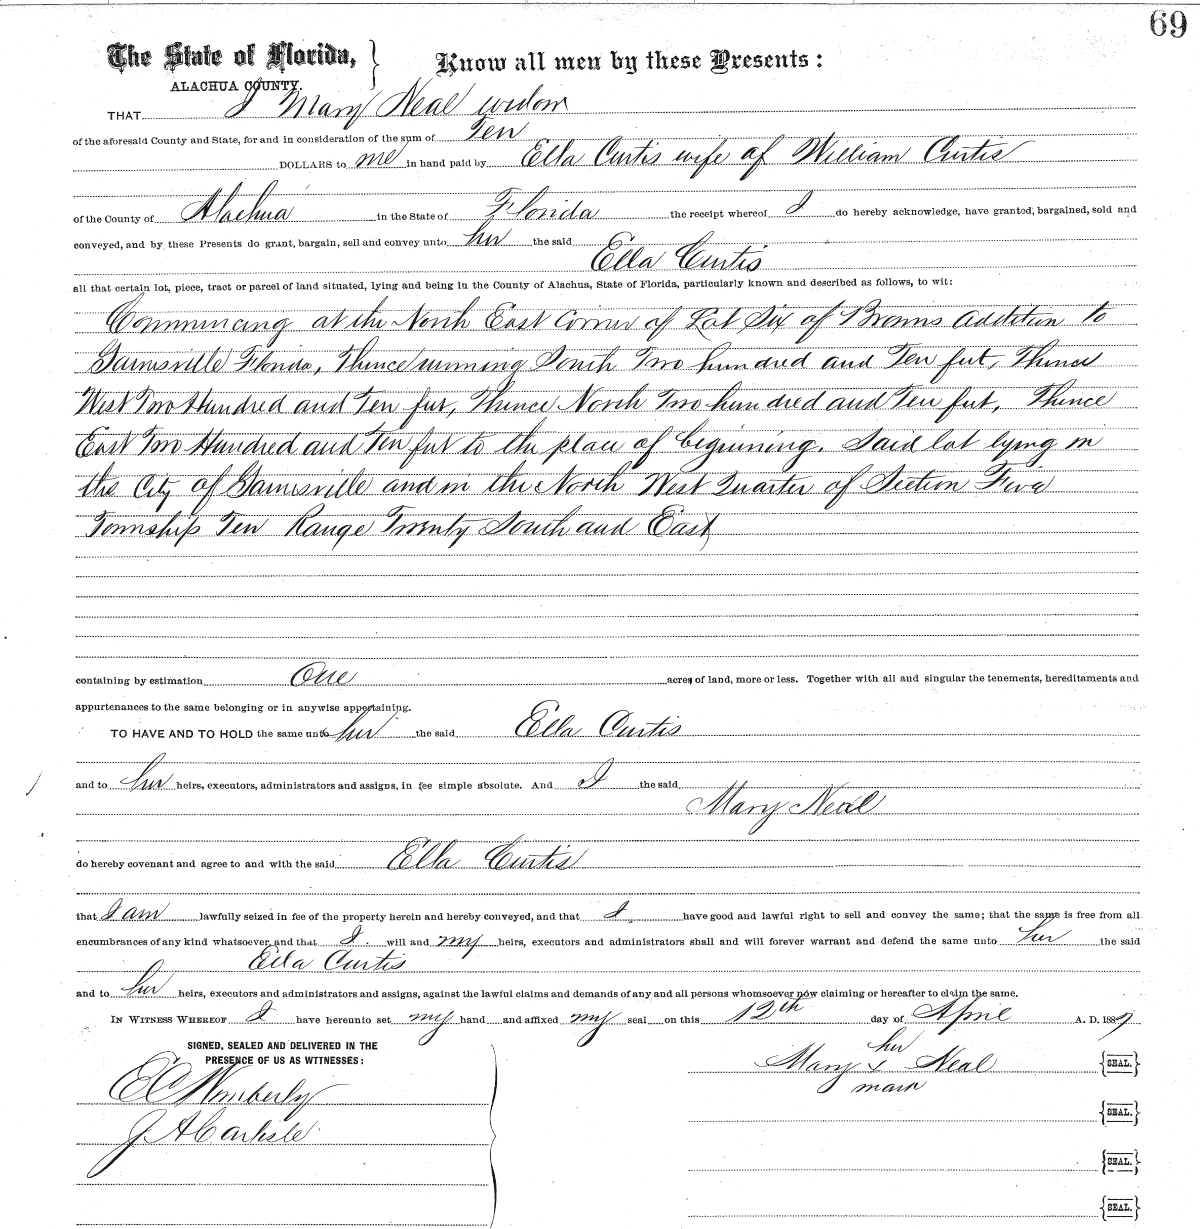 69
The State of Florida, } Know all men by these Presents:
ALACHUA COUNTY.
THAT I Mary Neal widow
of the aforesaid County and State, for and in consideration of the sum of Ten
DOLLARS to me in hand paid by Ella Curtis wife of William Curtis
of the County of Alachua in the State of Florida the receipt whereof I do hereby acknowledge, have granted, bargained, sold and
conveyed, and by these Presents do grant, bargain, sell and convey unto her the said
Ella Curtis
all that certain lot, piece, tract or parcel of land situated, lying and being in the County of Alachua, State of Florida, particularly known and described as follows, to wit:
Commencing at the North East Corner of Lot Six of Browns addition to
Gainesville Florida, Thence running South Two hundred and Ten feet, Thence
West Two Hundred and Ten feet, Thence North Two hundred and Ten feet, Thence
East Two Hundred and Ten feet to the place of beginning. Said lot lying in
the City of Gainesville and in the North West Quarter of Section Five
Township Ten Range Twenty South and East
containing by estimation One acres of land, more or less. Together with all and singular the tenements, hereditaments and
appurtenances to the same belonging or in anywise appertaining.
TO HAVE AND TO HOLD the same unto her the said Ella Curtis
and to her heirs, executors, administrators and assigns, in fee simple absolute. And I the said
Mary Neal
do hereby covenant and agree to and with the said Ella Curtis
that I am lawfully seized in fee of the property herein and hereby conveyed, and that I have good and lawful right to sell and convey the same; that the same is free from all
encumbrances of any kind whatsoever and that I will and my heirs, executors and administrators shall and will forever warrant and defend the same unto her the said
Ella Curtis
and to her heirs, executors and administrators and assigns, against the lawful claims and demands of any and all persons whomsoever now claiming or hereafter to claim the same.
IN WITNESS WHEREOF I have hereunto set my hand and affixed my seal on this 12th day of April A. D. 1887
SIGNED, SEALED AND DELIVERED IN THE
PRESENCE OF US AS WITNESSES:
her
Mary x Neal {SEAL.}
mark
E C Wimberly
{SEAL.}
J A Carlisle
{SEAL.}
{SEAL.}